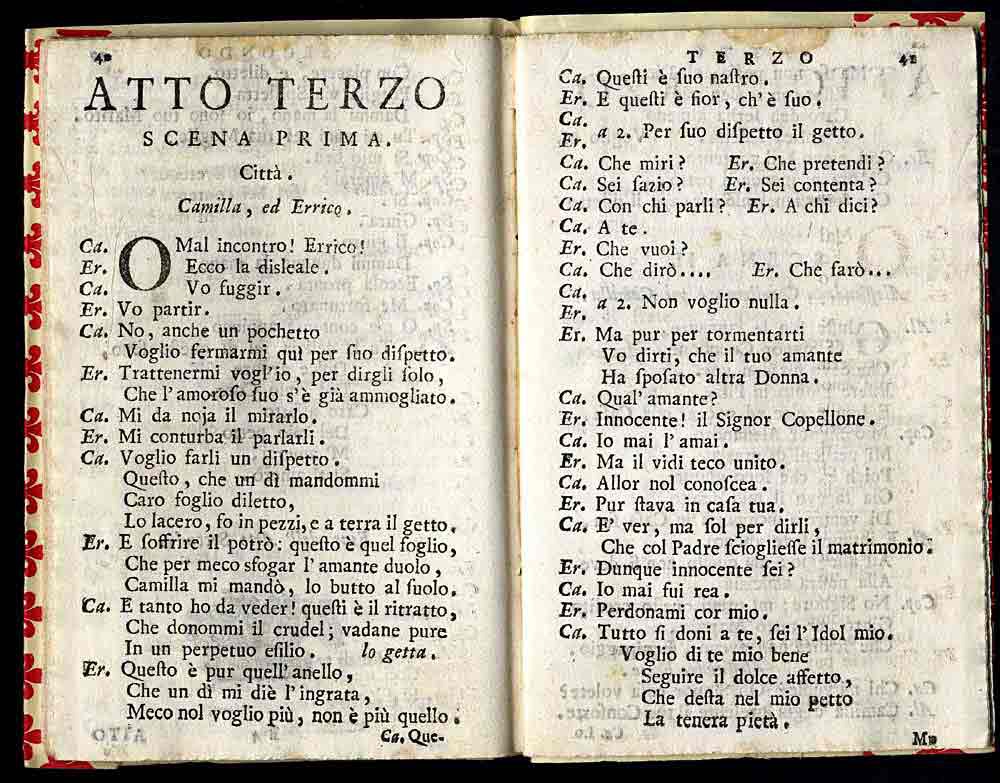 40
ATTO TERZO
SCENA PRIMA.
Città.
Camilla, ed Errico.
Ca. OMal incontro! Errico!
Er. Ecco la disleale.
Ca. Vo fuggir.
Er. Vo partir.
Ca. No, anche un pochetto
Voglio fermarmi quì per ſuo diſpetto.
Er. Trattenermi vogl'io, per dirgli ſolo,
Che l'amoroſo ſuo s'è già ammogliato.
Ca. Mi da noja il mirarlo.
Er. Mi conturba il parlarli.
Ca. Voglio farli un diſpetto.
Queſto, che un dì mandommi
Caro foglio diletto,
Lo lacero, fo in pezzi, e a terra il getto.
Er. E ſoffrire il potrò: queſto è quel foglio,
Che per meco sfogar l'amante duolo,
Camilla mi mandò, lo butto al ſuolo.
Ca. E tanto ho da veder! queſti è il ritratto,
Che donommi il crudel; vadane pure
In un perpetuo eſilio. lo getta.
Er. Queſto è pur quell'anello,
Che un dì mi diè l'ingrata,
Meco nol voglio più, non è più quello.
Ca. Que-
TERZO 41
Ca. Queſti è ſuo naſtro.
Er. E queſti è fior, ch'è ſuo.
Ca.
Er. a 2. Per ſuo diſpetto il getto.
Ca. Che miri? Er. Che pretendi?
Ca. Sei ſazio? Er. Sei contenta?
Ca. Con chi parli? Er. A chi dici?
Ca. A te.
Er. Che vuoi?
Ca. Che dirò.... Er. Che farò...
Ca.
Er. a 2. Non voglio nulla.
Er. Ma pur per tormentarti
Vo dirti, che il tuo amante
Ha ſpoſato altra Donna.
Ca. Qual'amante?
Er. Innocente! il Signor Copellone.
Ca. Io mai l'amai.
Er. Ma il vidi teco unito.
Ca. Allor nol conoſcea.
Er. Pur ſtava in caſa tua.
Ca. E' ver, ma ſol per dirli,
Che col Padre ſciogliesſe il matrimonio.
Er. Dunque innocente ſei?
Ca. Io mai fui rea.
Er. Perdonami cor mio.
Ca. Tutto ſi doni a te, ſei l'Idol mio.
Voglio di te mio bene
Seguire il dolce affetto,
Che deſta nel mio petto
La tenera pietà.